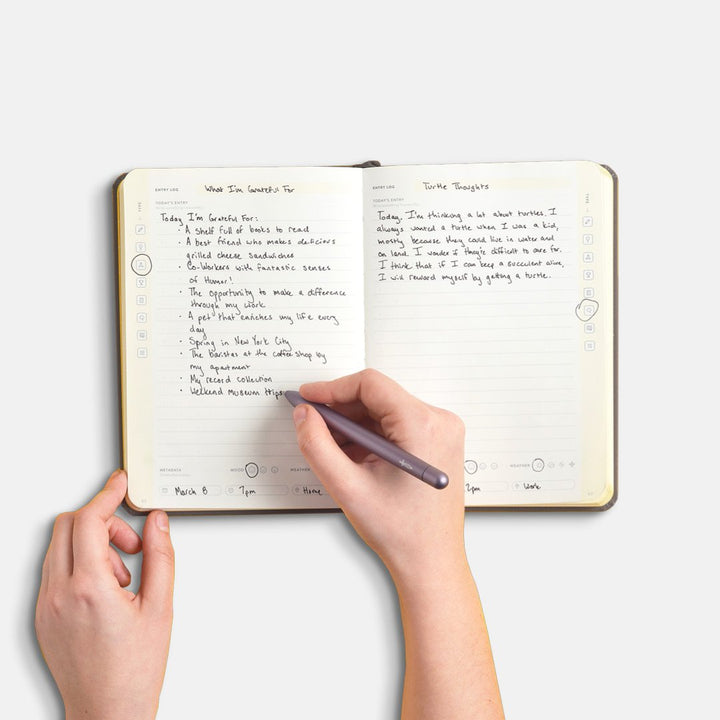 ENTRY LOG What I'm Grateful For
TODAY'S ENTRY
Today I'm Grateful For:
• A shelf full of books to read
• A best friend who makes delicious
grilled cheese sandwiches
• Co-Workers with fantastic senses
of Humor!
• The opportunity to make a difference
through my work
• A pet that enriches my life every
day
• Spring in New York City
• The baristas at the coffee shop by
my apartment
• My record collection
• Weekend Museum trips
METADATA
MOOD
WEATHER
March 8 7pm Home
TYPE
ENTRY LOG Turtle Thoughts
TODAY'S ENTRY
Today, I'm thinking a lot about turtles. I
always wanted a turtle when I was a kid,
mostly because they could live in water and
on land. I wonder if they're difficult to care for.
I think that if I can keep a succulent alive,
I will reward myself by getting a turtle.
WEATHER
2pm Work
TYPE